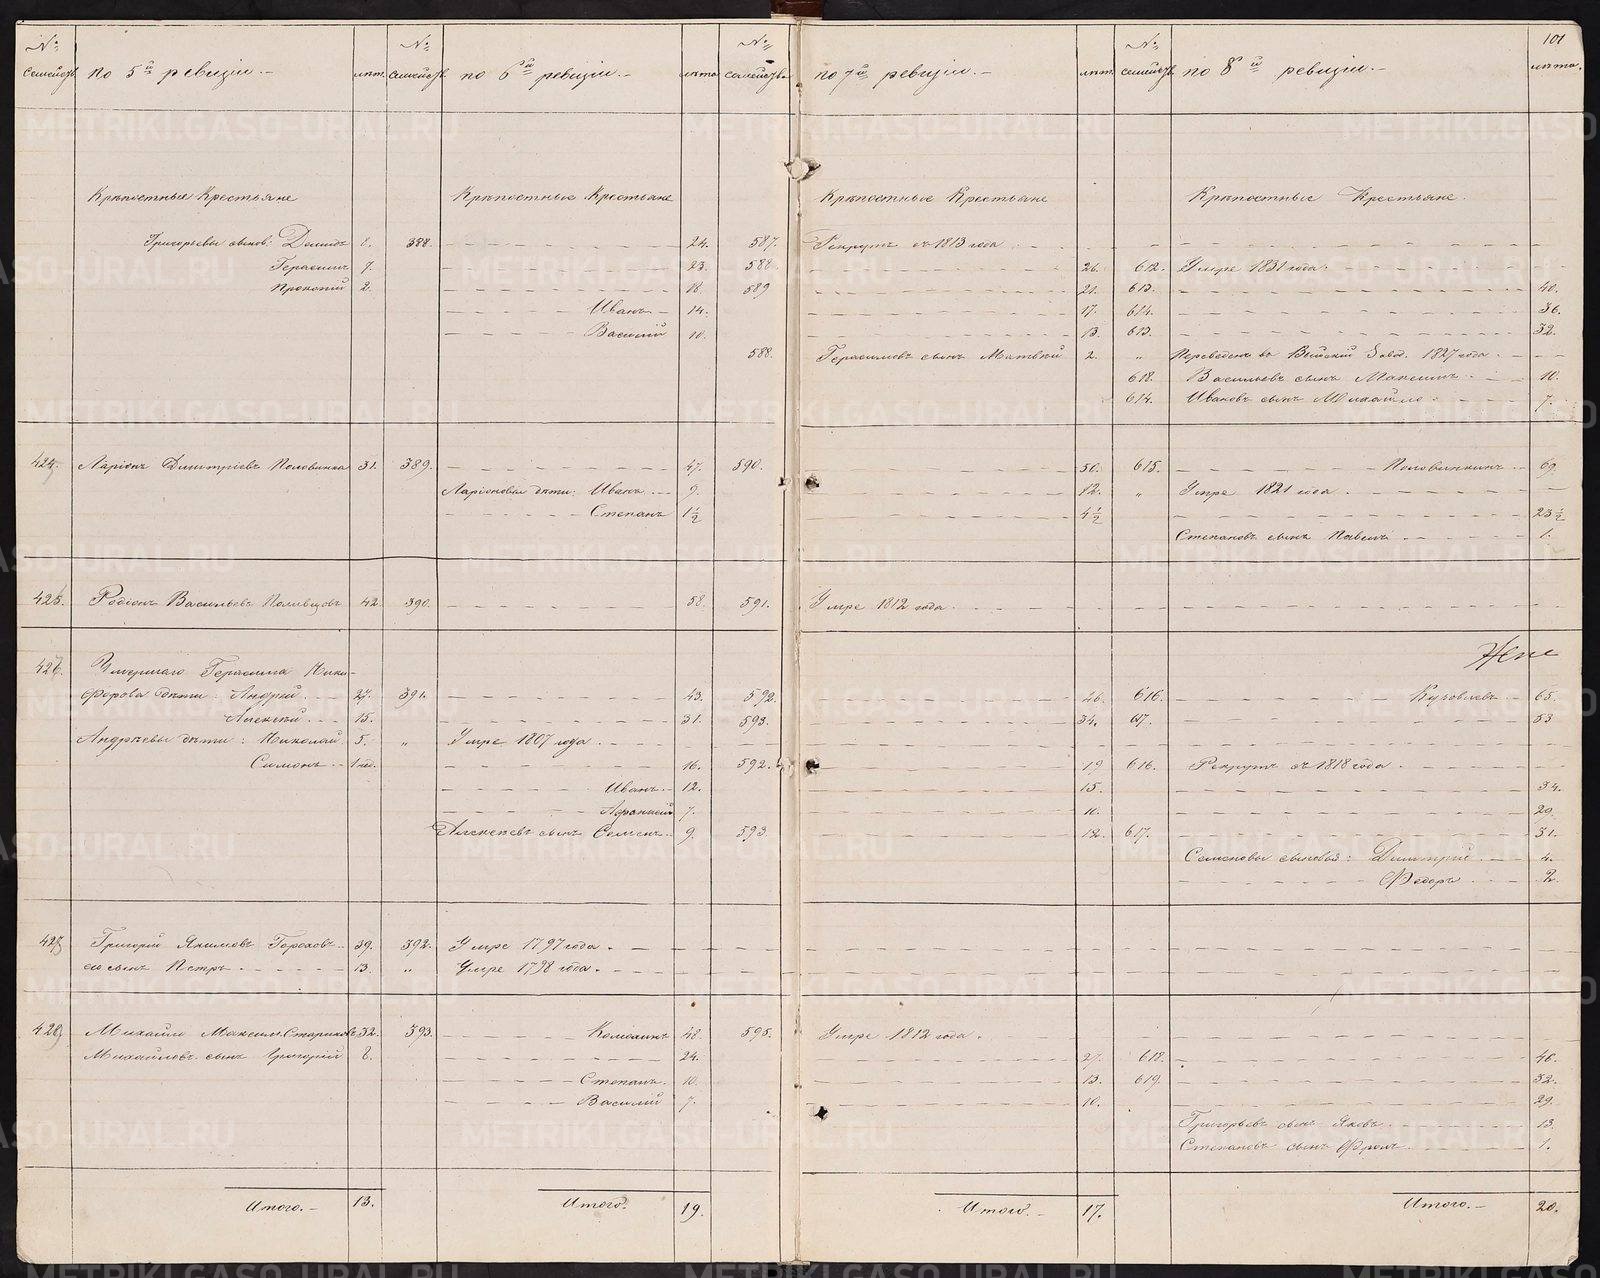 101
№ семейств по 5й ревизіи.- лѣт. № семейств по 6й ревизіи.- лѣта № семейства по 7й ревизіи.- лѣт. № семейств по 8й ревизіи.- лѣта.
Крѣпостные Крестьяне Крѣпостные Крестьяне Крѣпостные Крестьяне Крѣпостные Крестьяне.
Григорьевы сынов: Демидъ 8. 388. 24. 587. Рекрутъ съ 1813 года
Герасимъ 7. 23. 588. 26. 612. Умре 1831 года.
Прокопій 2. 18. 589 21. 613. 40.
Иванъ 14. 17. 614. 36.
Василій 10. 13. 613. 32.
588. Герасимовъ сынъ Матвѣй 2. " Переведенъ въ Выйскій Завод. 1827 года
618. Васильевъ сынъ Максимъ 10.
614. Ивановъ сынъ Михайло 7.
424. Ларіонъ Дмитріевъ Половинка 31. 389. 47. 590. 50. 615. Половинкинъ 69.
Ларіоновы дѣти: Иванъ 9. 12. " Умре 1821 года.
Степанъ 1½ 4½ 23½
Степановъ сынъ Павелъ 1.
425. Родіонъ Васильевъ Поливцовъ 42. 390. 58. 591. Умре 1812 года.
426. Умершаго Герасима Ники-
форова дѣти: Андрей 27. 391. 43. 592. 26. 616. 65.
Алексѣй 15. 31. 593. 34. 617. 53
Андрѣевы дѣти: Николай 5. " Умре 1807 года.
Симонъ 1 16. 592. 19 616. Рекрутъ съ 1818 года
Иванъ 12. 15. 34.
7. 10. 29.
Алексѣевъ сынъ Семенъ 9. 593 12. 617. 31.
Семеновы сыновья: Дмитрій 4.
Федоръ 2.
427 Григорій Якимовъ Гороховъ 39. 392. Умре 1797 года.
его сынъ Петръ 13. " Умре 1798 года.
428 Михайло Максим. Стариковъ 32. 393. 48. 595. Умре 1812 года.
Михайловъ сынъ Григорій 8. 24. 27. 618. 46.
Степанъ 10. 13. 619. 32.
Василій 7. 10. 29.
Григорьевъ сынъ Яковъ 13.
Степановъ сынъ Фролъ 1.
Итого.- 13. Итого. 19. Итого.- 17. Итого.- 20.
METRIKI.GASO-URAL.RU